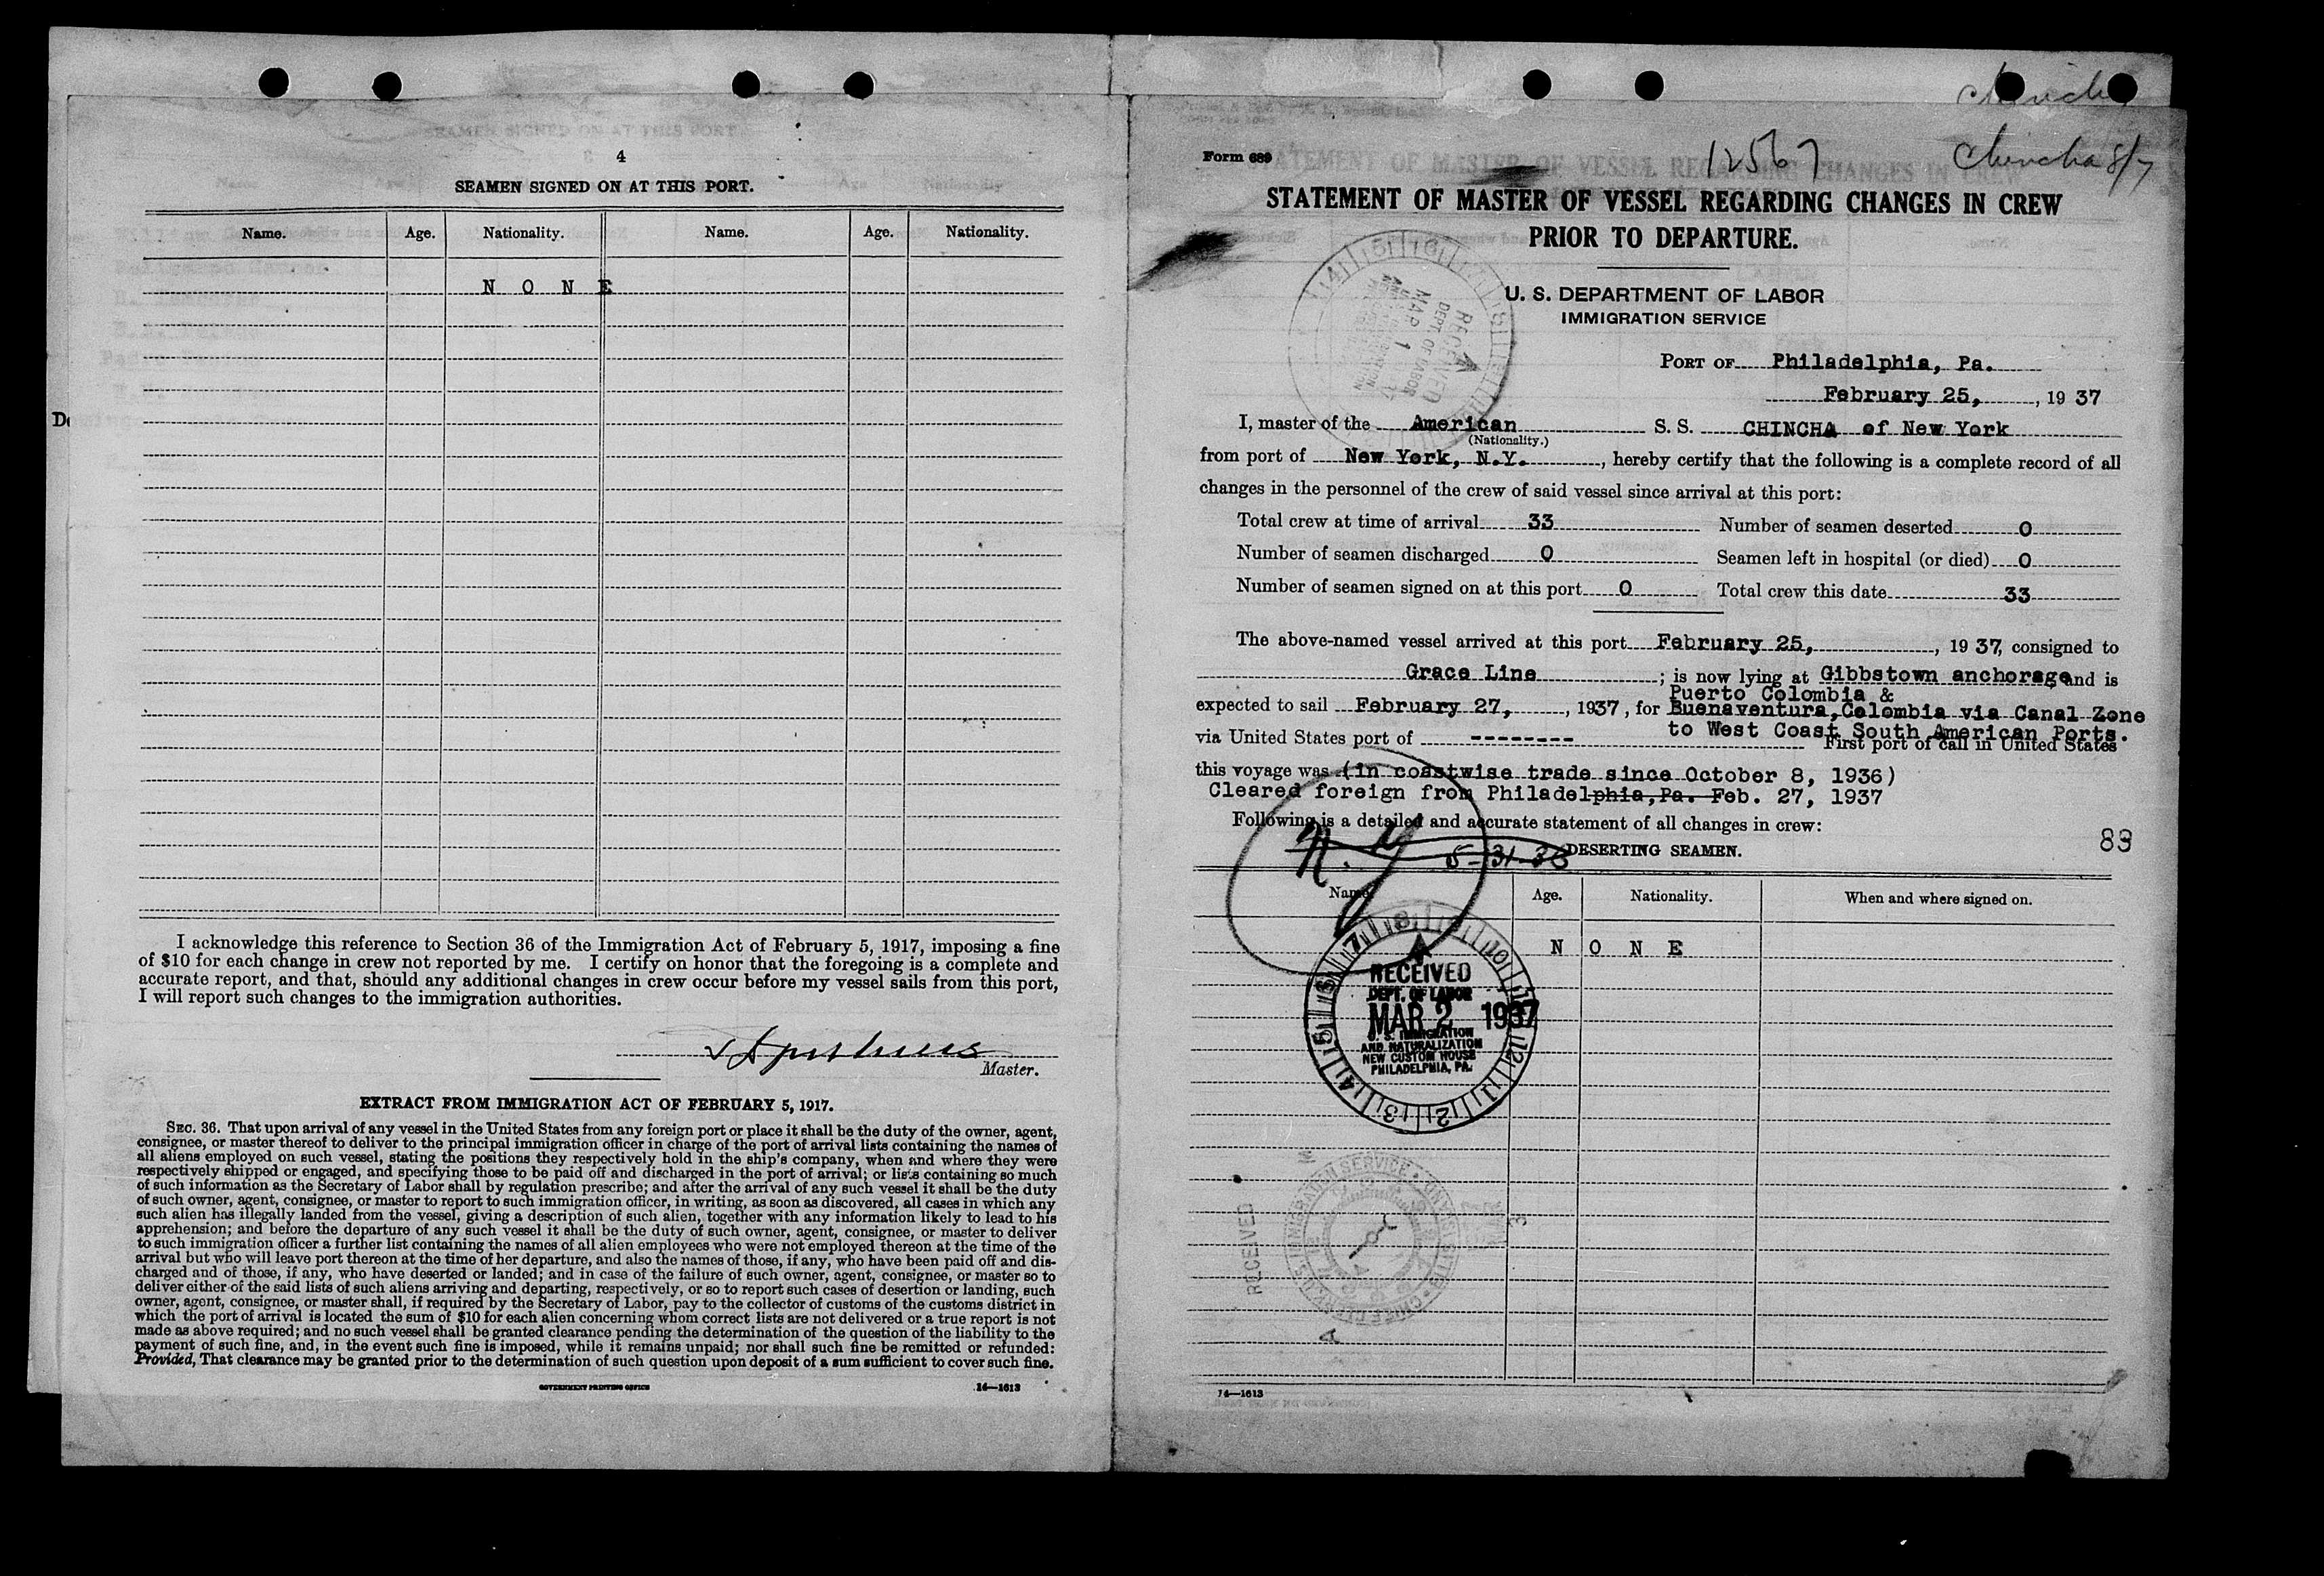 4
SEAMEN SIGNED ON AT THIS PORT.
Name. Age. Nationality. Name. Age. Nationality.
N O N E
I acknowledge this reference to Section 36 of the Immigration Act of February 5, 1917, imposing a fine
of $10 for each change in crew not reported by me. I certify on honor that the foregoing is a complete and
accurate report, and that, should any additional changes in crew occur before my vessel sails from this port,
I will report such changes to the immigration authorities.
Master.
EXTRACT FROM IMMIGRATION ACT OF FEBRUARY 5, 1917.
SEC. 36. That upon arrival of any vessel in the United States from any foreign port or place it shall be the duty of the owner, agent,
consignee, or master thereof to deliver to the principal immigration officer in charge of the port of arrival lists containing the names of
all aliens employed on such vessel, stating the positions they respectively hold in the ship's company, when and where they were
respectively shipped or engaged, and specifying those to be paid off and discharged in the port of arrival; or lists containing so much
of such information as the Secretary of Labor shall by regulation prescribe; and after the arrival of any such vessel it shall be the duty
of such owner, agent, consignee, or master to report to such immigration officer, in writing, as soon as discovered, all cases in which any
such alien has illegally landed from the vessel, giving a description of such alien, together with any information likely to lead to his
apprehension; and before the departure of any such vessel it shall be the duty of such owner, agent, consignee, or master to deliver
to such immigration officer a further list containing the names of all alien employees who were not employed thereon at the time of the
arrival but who will leave port thereon at the time of her departure, and also the names of those, if any, who have been paid off and dis-
charged and of those, if any, who have deserted or landed; and in case of the failure of such owner, agent, consignee, or master so to
deliver either of the said lists of such aliens arriving and departing, respectively, or so to report such cases of desertion or landing, such
owner, agent, consignee, or master shall, if required by the Secretary of Labor, pay to the collector of customs of the customs district in
which the port of arrival is located the sum of $10 for each alien concerning whom correct lists are not delivered or a true report is not
made as above required; and no such vessel shall be granted clearance pending the determination of the question of the liability to the
payment of such fine, and, in the event such fine is imposed, while it remains unpaid; nor shall such fine be remitted or refunded:
Provided, That clearance may be granted prior to the determination of such question upon deposit of a sum sufficient to cover such fine.
GOVERNMENT PRINTING OFFICE 14—1613
Form 689 12567 Chincha 8/7
STATEMENT OF MASTER OF VESSEL REGARDING CHANGES IN CREW
PRIOR TO DEPARTURE.
U. S. DEPARTMENT OF LABOR
IMMIGRATION SERVICE
PORT OF Philadelphia, Pa.
February 25, , 19 37
I, master of the American S. S. CHINCHA of New York
(Nationality.)
from port of New York, N.Y. , hereby certify that the following is a complete record of all
changes in the personnel of the crew of said vessel since arrival at this port:
Total crew at time of arrival 33 Number of seamen deserted 0
Number of seamen discharged 0 Seamen left in hospital (or died) 0
Number of seamen signed on at this port 0 Total crew this date 33
The above-named vessel arrived at this port February 25, , 19 37, consigned to
Grace Line ; is now lying at Gibbstown anchorage and is
Puerto Colombia &
expected to sail February 27, , 1937, for Buenaventura, Colombia via Canal Zone
to West Coast South American Ports.
via United States port of -------- First port of call in United States
this voyage was (in coastwise trade since October 8, 1936)
Cleared foreign from Philadelphia, Pa. Feb. 27, 1937
Following is a detailed and accurate statement of all changes in crew:
N.Y 5-31-36 DESERTING SEAMEN. 83
Name Age. Nationality. When and where signed on.
N O N E
RECEIVED
DEPT. OF LABOR
MAR 2 1937
U. S. IMMIGRATION
AND NATURALIZATION
NEW CUSTOM HOUSE
PHILADELPHIA, PA.
RECEIVED
14—1613